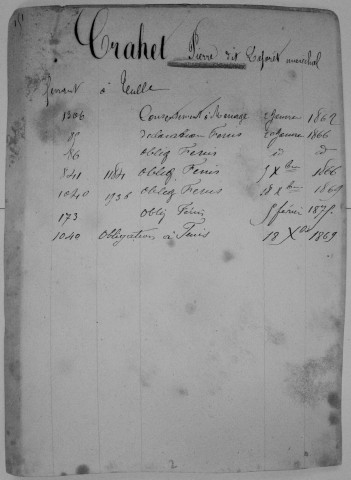 Trahet Pierre dit maréchal
Tenant à Tulle
1306 Consentement à Mariage 2 Janvier 1862
85 déclaration Fenis 20 Janvier 1866
86 Obligº Fenis id id
841 1184 Obligº Fenis 7 Xbre 1866
1040 1936 Obligº Fenis 18 Xbre 1869
173 Oblig Fenis 5 févri 1875.
1040 Obligation à Fenis 18 Xbre 1869
2